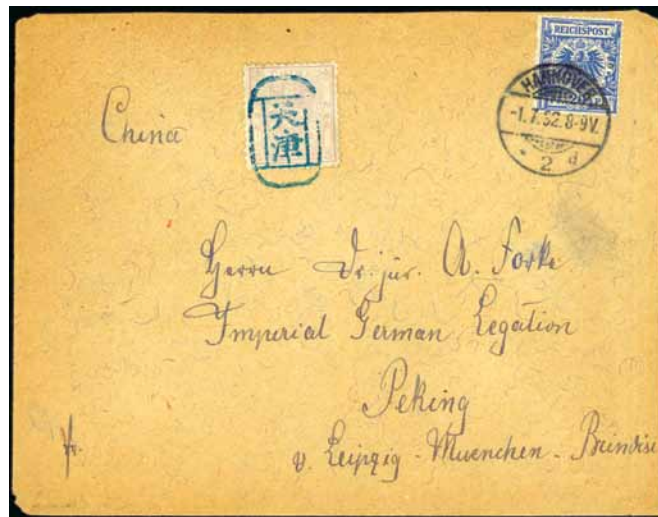 REICHSPOST
HANNOVER
-1.7.92.8-9V.
* 2 d
China
天津
Herrn Dr. jur. A. Forke
Imperial German Legation
Peking
v. Leipzig - Muenchen - Brindisi